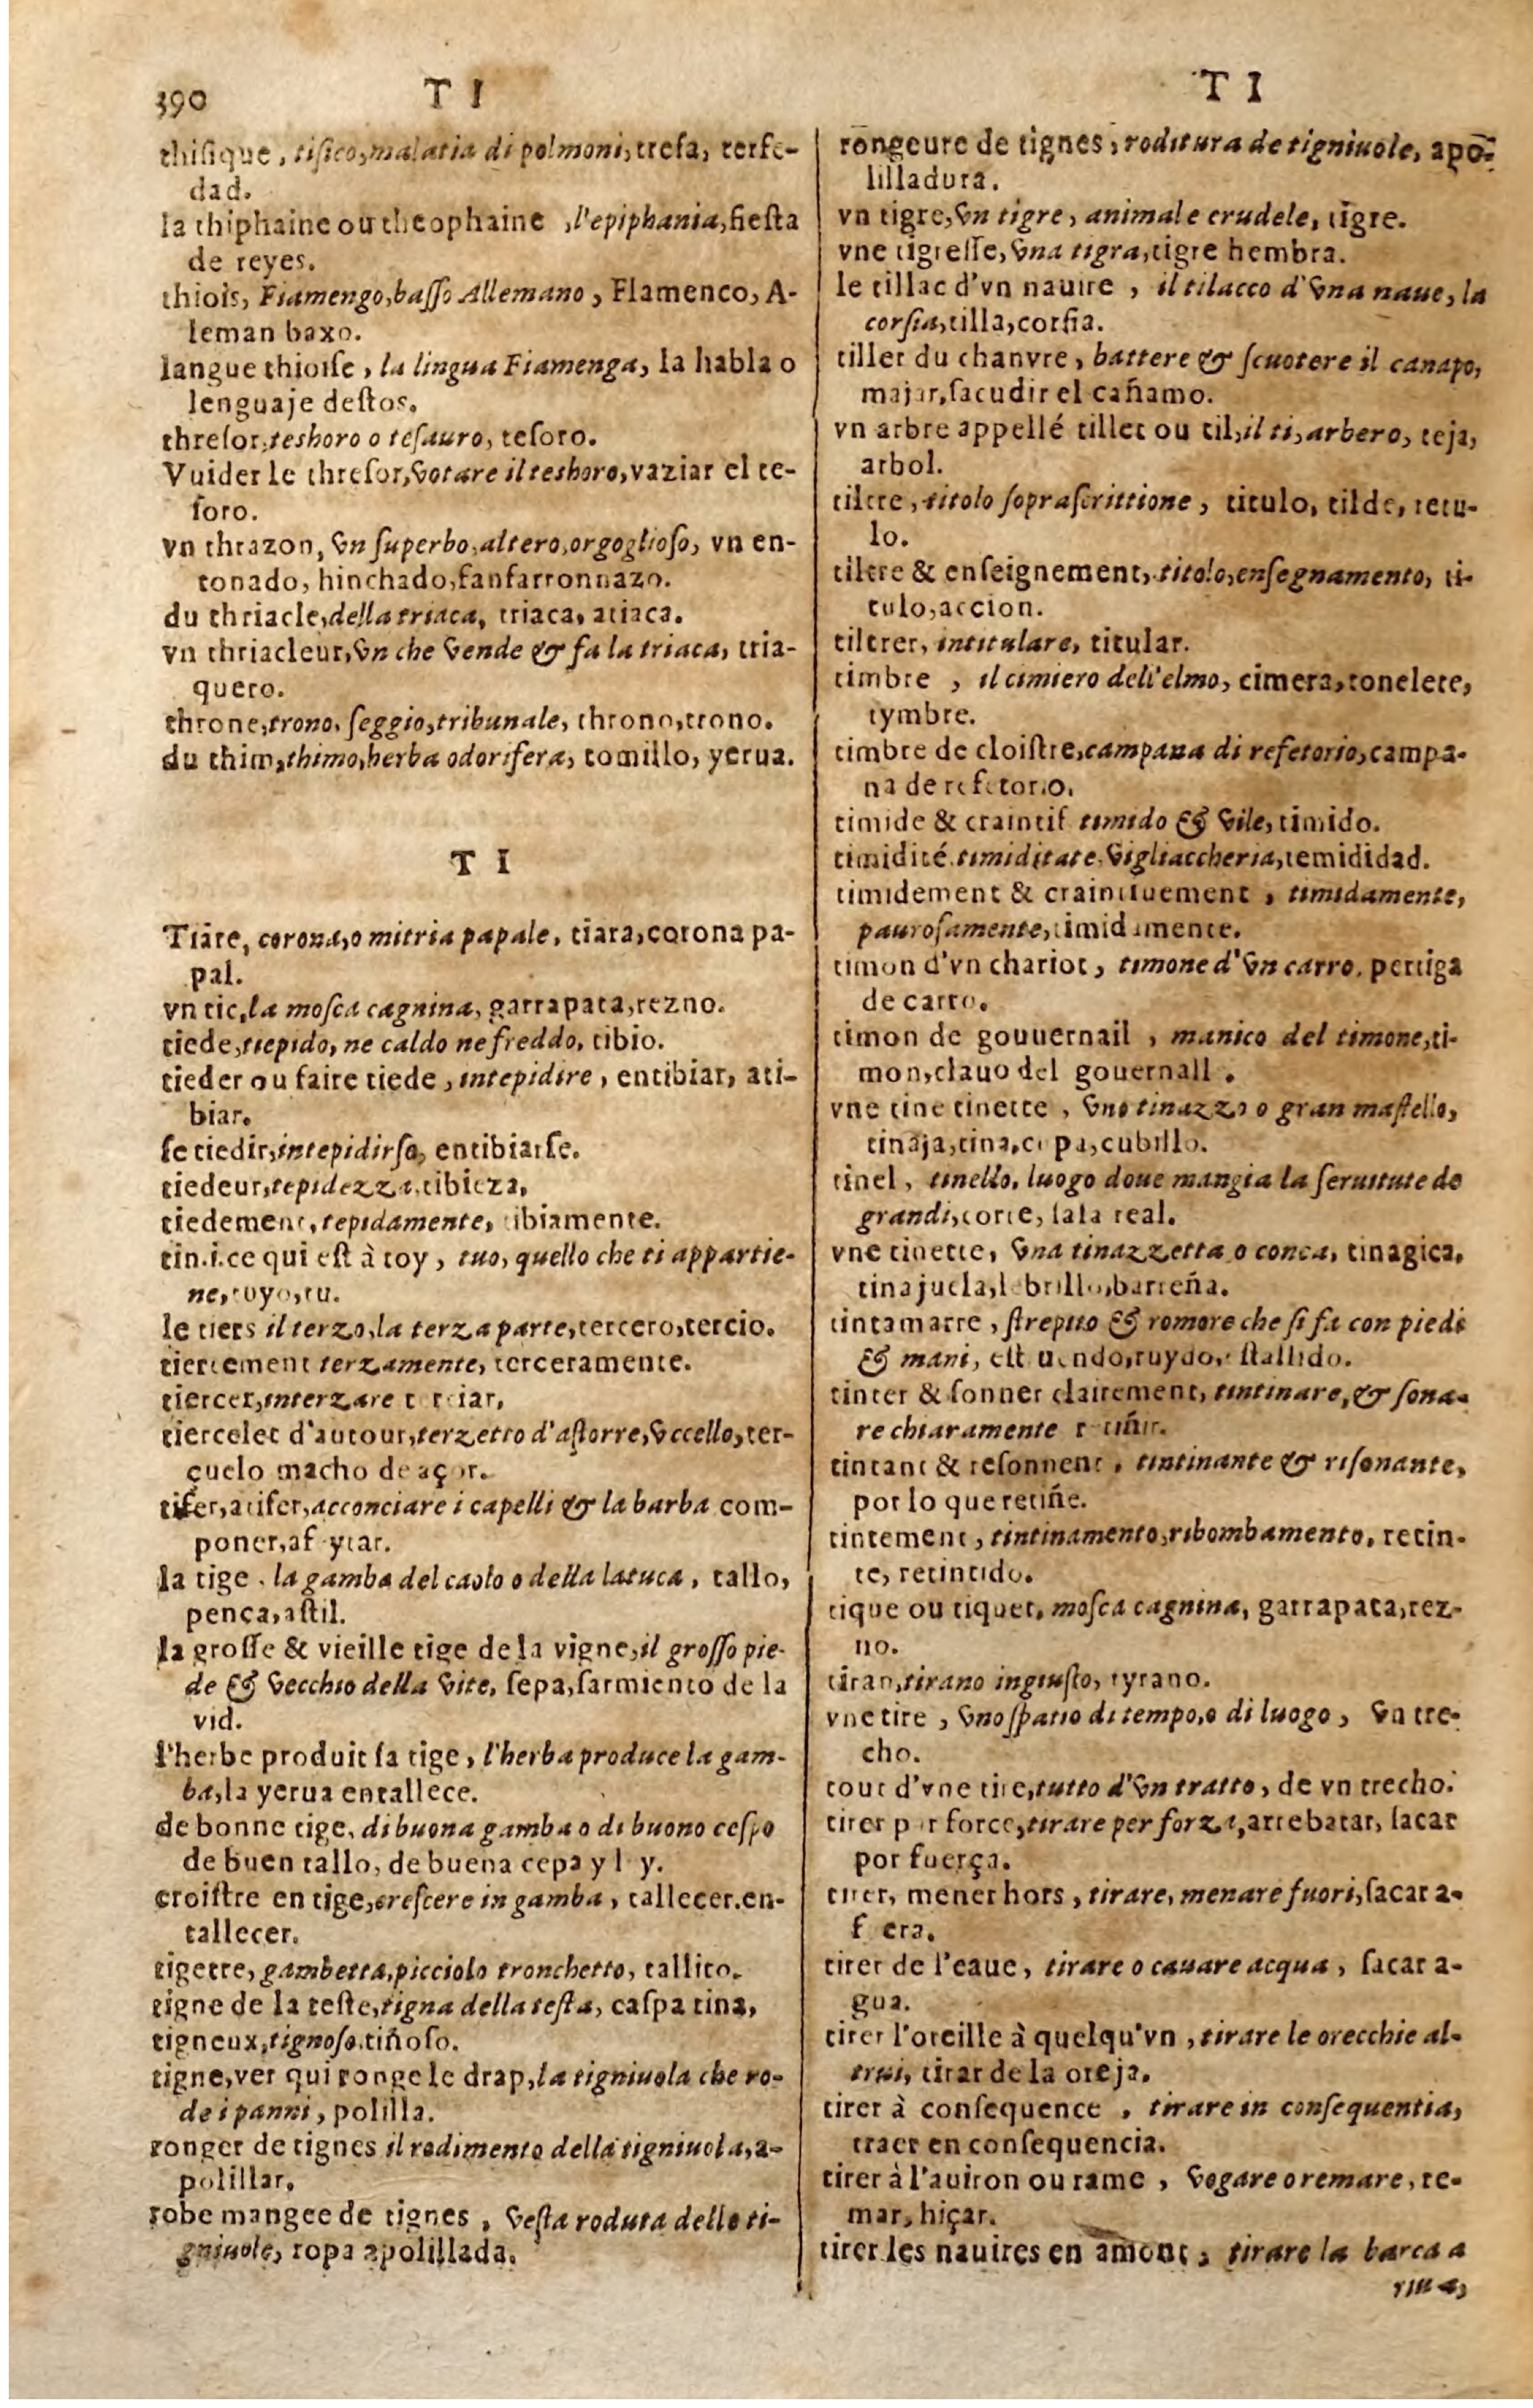 390 T I T I
thisique, tisico, malatia di polmoni, trefa, terfe-
dad.
la thiphaine ou theophaine, l'epiphania, fiesta
de reyes.
thiois, Fiamengo, basso Allemano, Flamenco, A-
leman baxo.
langue thioise, la lingua Fiamenga, la habla o
lenguaje destos.
thresor, teshoro o tesauro, tesoro.
Vuider le thresor, votare il teshoro, vaziar el te-
soro.
vn thrazon, vn superbo, altero, orgoglioso, vn en-
tonado, hinchado, fanfarronnazo.
du thriacle, della triaca, triaca, atiaca.
vn thriacleur, vn che vende & fa la triaca, tria-
quero.
throne, trono, seggio, tribunale, throno, trono.
du thim, thimo, herba odorifera, tomillo, yerua.
T I
Tiare, corona, o mitria papale, tiara, corona pa-
pal.
vn tic, la mosca cagnina, garrapata, rezno.
tiede, tiepido, ne caldo ne freddo, tibio.
tieder ou faire tiede, intepidire, entibiar, ati-
biar.
se tiedir, intepidirse, entibiarse.
tiedeur, tepidezza, tibieza,
tiedement, tepidamente, tibiamente.
tin.i.ce qui est à toy, tuo, quello che ti appartie-
ne, tuyo, tu.
le tiers il terzo, la terza parte, tercero, tercio.
tiercement terzamente, terceramente.
tiercer, interzare terciar,
tiercelet d'autour, terzetto d'astorre, vccello, ter-
çuelo macho de açor.
tifer, atifer, acconciare i capelli & la barba com-
poner, afeytar.
la tige, la gamba del caolo o della latuca, tallo,
penca, astil.
la grosse & vieille tige de la vigne, il grosso pie-
de & vecchio della vite, sepa, sarmiento de la
vid.
l'herbe produit sa tige, l'herba produce la gam-
ba, la yerua entallece.
de bonne tige, di buona gamba o di buono cespo
de buen tallo, de buena cepa y l y.
croistre en tige, crescere in gamba, tallecer. en-
tallecer.
tigette, gambetta, picciolo tronchetto, tallito.
tigne de la teste, tigna della testa, caspa tina,
tigneux, tignoso, tiñoso.
tigne, ver qui ronge le drap, la tigniuola che ro-
de i panni, polilla.
ronger de tignes il rodimento della tigniuola, a-
polillar.
robe mangee de tignes, vesta roduta delle ti-
gniuole, ropa apolillada.
rongeure de tignes, roditura de tigniuole, apo-
lilladura.
vn tigre, vn tigre, animale crudele, tigre.
vne tigresse, vna tigra, tigre hembra.
le tillac d'vn nauire, il tilacco d'vna naue, la
corsia, tilla, corsia.
tiller du chanvre, battere & scuotere il canapo,
majar, sacudir el cañamo.
vn arbre appellé tillet ou til, il ti, arbero, teja,
arbol.
tiltre, titolo soprascrittione, titulo, tilde, retu-
lo.
tiltre & enseignement, titolo, ensegnamento, ti-
tulo, accion.
tiltrer, intitulare, titular.
timbre, il cimiero dell'elmo, cimera, tonelete,
tymbre.
timbre de cloistre, campana di refetorio, campa-
na de refetorio.
timide & craintif timido & vile, timido.
timidité, timiditate, vigliaccheria, temididad.
timidement & craintiuement, timidamente,
paurosamente, timidamente.
timon d'vn chariot, timone d'vn carro, pertiga
de carro.
timon de gouuernail, manico del timone, ti-
mon, clauo del gouernall.
vne tine tinette, vno tinazzo o gran mastello,
tinaja, tina, cepa, cubillo.
tinel, tinello, luogo doue mangia la seruitute de
grandi, corte, sala real.
vne tinette, vna tinazzetta o conca, tinagica,
tinajuela, lebrillo, barreña.
tintamarre, strepito & romore che si fa con piedi
& mani, estruendo, ruydo, estallido.
tinter & sonner clairement, tintinare, & sona-
re chiaramente retiñir.
tintant & resonnent, tintinante & risonante,
por lo que retiñe.
tintement, tintinamento, ribombamento, retin-
te, retintido.
tique ou tiquet, mosca cagnina, garrapata, rez-
no.
tiran, tirano ingiusto, tyrano.
vne tire, vno spatio di tempo, o di luogo, vn tre-
cho.
tout d'vne tire, tutto d'vn tratto, de vn trecho.
tirer par force, tirare per forza, arrebatar, sacar
por fuerça.
tirer, mener hors, tirare, menare fuori, sacar a-
fuera.
tirer de l'eaue, tirare o cauare acqua, sacar a-
gua.
tirer l'oreille à quelqu'vn, tirare le orecchie al-
trui, tirar de la oreja.
tirer à consequence, tirare in consequentia,
traer en consequencia.
tirer à l'auiron ou rame, vogare o remare, re-
mar, hiçar.
tirer les nauires en amont, tirare la barca a
riua,